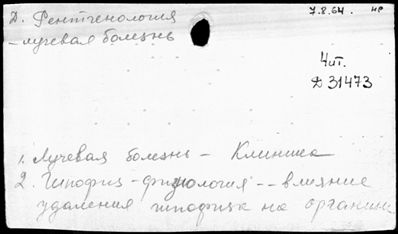 Д. Рентгенология 7.8.64. нр
- лучевая болезнь
Чит.
Д 31473
1. Лучевая болезнь - Клиника
2. Гипофиз - физиология -- влияние
удаления гипофиза на организм